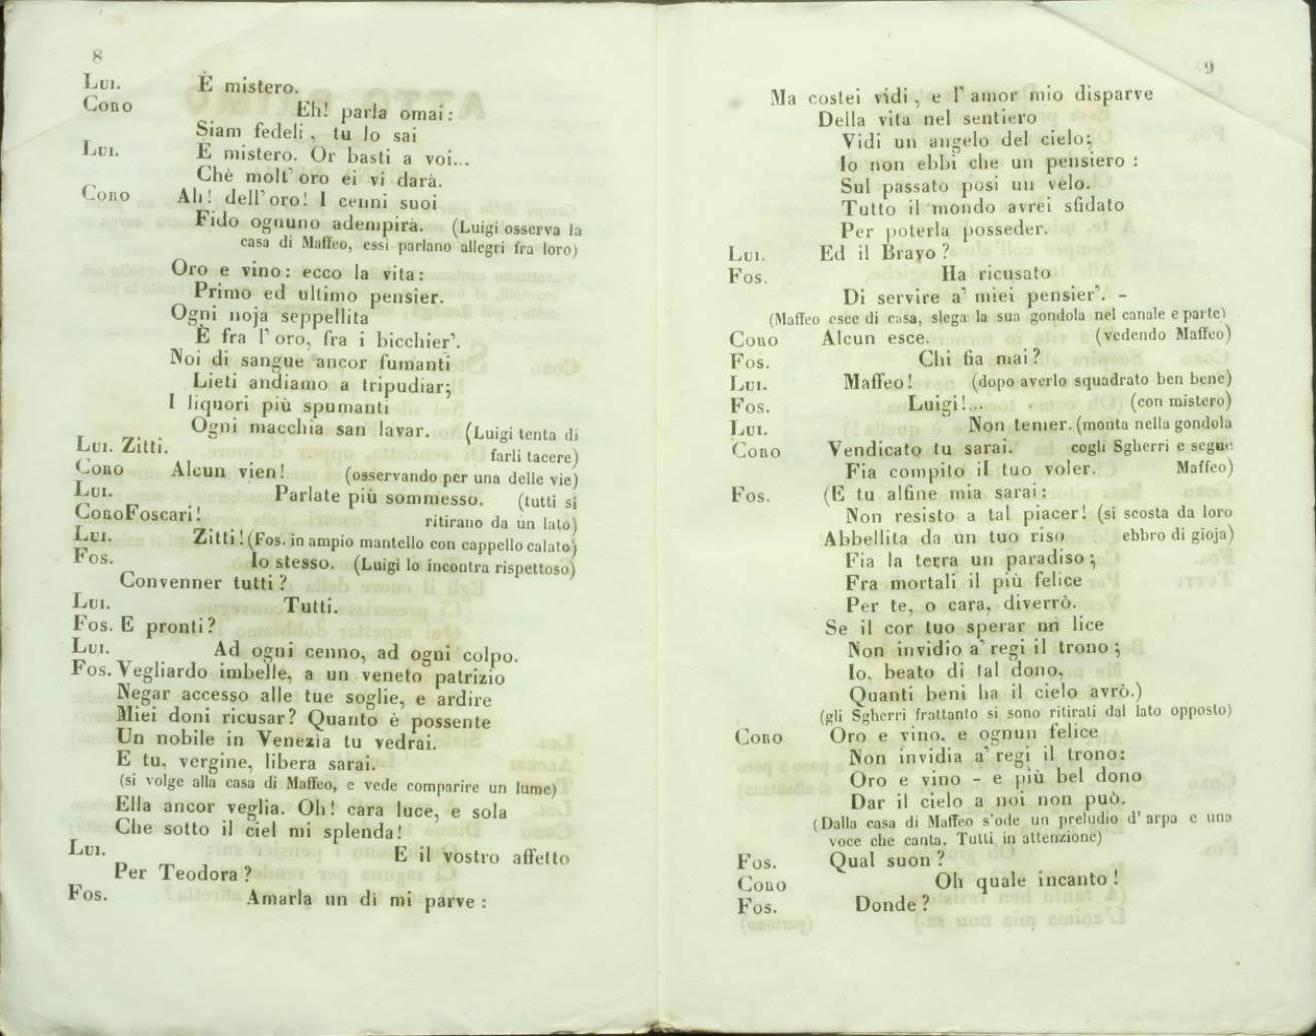 8
Lui. È mistero.
Coro Eh! parla omai:
Siam fedeli, tu lo sai
Lui. È mistero. Or basti a voi...
Chè molt' oro ei vi darà.
Coro Ah! dell'oro! I cenni suoi
Fido ognuno adempirà. (Luigi osserva la
casa di Maffeo, essi parlano allegri fra loro)
Oro e vino: ecco la vita:
Primo ed ultimo pensier.
Ogni noja seppellita
È fra l'oro, fra i bicchier'.
Noi di sangue ancor fumanti
Lieti andiamo a tripudiar;
I liquori più spumanti
Ogni macchia san lavar. (Luigi tenta di
Lui. Zitti. farli tacere)
Coro Alcun vien! (osservando per una delle vie)
Lui. Parlate più sommesso. (tutti si
Coro Foscari! ritirano da un lato)
Lui. Zitti! (Fos. in ampio mantello con cappello calato)
Fos. Io stesso. (Luigi lo incontra rispettoso)
Convenner tutti?
Lui. Tutti.
Fos. E pronti?
Lui. Ad ogni cenno, ad ogni colpo.
Fos. Vegliardo imbelle, a un veneto patrizio
Negar accesso alle tue soglie, e ardire
Miei doni ricusar? Quanto è possente
Un nobile in Venezia tu vedrai.
E tu, vergine, libera sarai.
(si volge alla casa di Maffeo, e vede comparire un lume)
Ella ancor veglia. Oh! cara luce, e sola
Che sotto il ciel mi splenda!
Lui. E il vostro affetto
Per Teodora?
Fos. Amarla un dì mi parve:
9
Ma costei vidi, e l'amor mio disparve
Della vita nel sentiero
Vidi un angelo del cielo;
Io non ebbi che un pensiero:
Sul passato posi un velo.
Tutto il mondo avrei sfidato
Per poterla posseder.
Lui. Ed il Bravo?
Fos. Ha ricusato
Di servire a' miei pensier'. -
(Maffeo esce di casa, slega la sua gondola nel canale e parte)
Coro Alcun esce. (vedendo Maffeo)
Fos. Chi fia mai?
Lui. Maffeo! (dopo averlo squadrato ben bene)
Fos. Luigi!... (con mistero)
Lui. Non temer. (monta nella gondola
Coro Vendicato tu sarai. cogli Sgherri e segue
Fia compito il tuo voler. Maffeo)
Fos. (E tu alfine mia sarai:
Non resisto a tal piacer! (si scosta da loro
Abbellita da un tuo riso ebbro di gioja)
Fia la terra un paradiso;
Fra mortali il più felice
Per te, o cara, diverrò.
Se il cor tuo sperar un lice
Non invidio a' regi il trono;
Io, beato di tal dono,
Quanti beni ha il cielo avrò.)
(gli Sgherri frattanto si sono ritirati dal lato opposto)
Coro Oro e vino, e ognun felice
Non invidia a' regi il trono:
Oro e vino - e più bel dono
Dar il cielo a noi non può.
(Dalla casa di Maffeo s'ode un preludio d'arpa e una
voce che canta. Tutti in attenzione)
Fos. Qual suon?
Coro Oh quale incanto!
Fos. Donde?